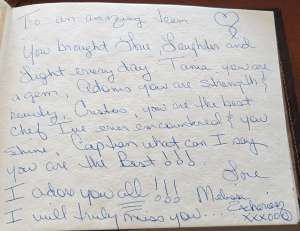 To an amazing team
You brought Love Laughter and
Light every day Tania you are
a gem, Adonis you are strength &
beauty, Cristos, you are the best
chef I've ever encountered & you
shine, Captian what can I say
you are the Best!!!
Love
I adore you all!!!
I will truly miss you...
xxxooo